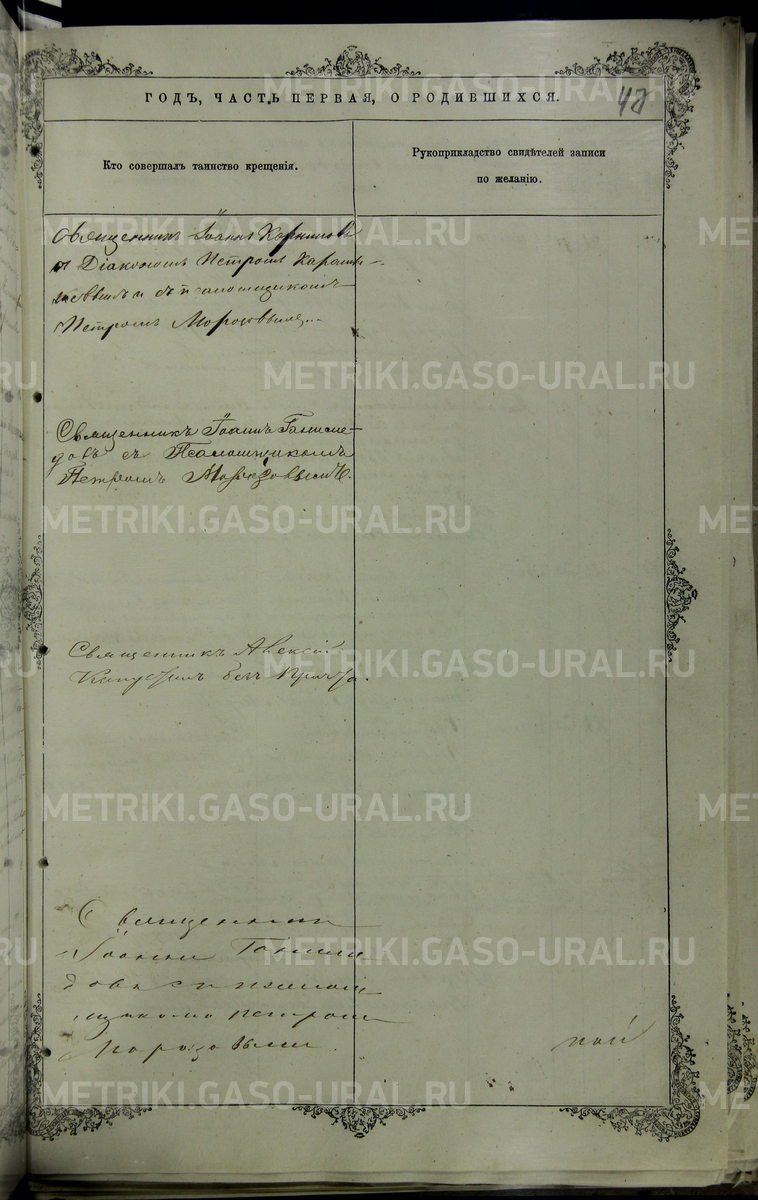 ГОДЪ, ЧАСТЬ ПЕРВАЯ, О РОДИВШИХСЯ.
Кто совершалъ таинство крещенія.
Рукоприкладство свидѣтелей записи
по желанію.
Священникъ Іоаннъ
Діакономъ Петромъ
и съ псаломщикомъ
Петромъ Морозовымъ
Священникъ Іоаннъ Ганиме-
довъ съ Псаломщикомъ
Петромъ Морозовымъ.
Священникъ Алексій
Капустинъ безъ Причта.
Священникъ
Іоаннъ Ганиме
довъ съ псалом
щикомъ Петромъ
Морозовымъ
METRIKI.GASO-URAL.RU